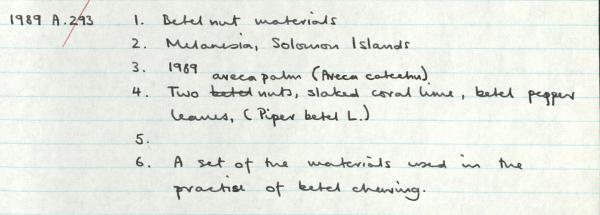 1989 A.293 1. Betel nut materials
2. Melanesia, Solomon Islands
3. 1989
areca palm (Areca catechu)
4. Two betel nuts, slaked coral lime, betel pepper
leaves, (Piper betel L.)
5.
6. A set of the materials used in the
practise of betel chewing.